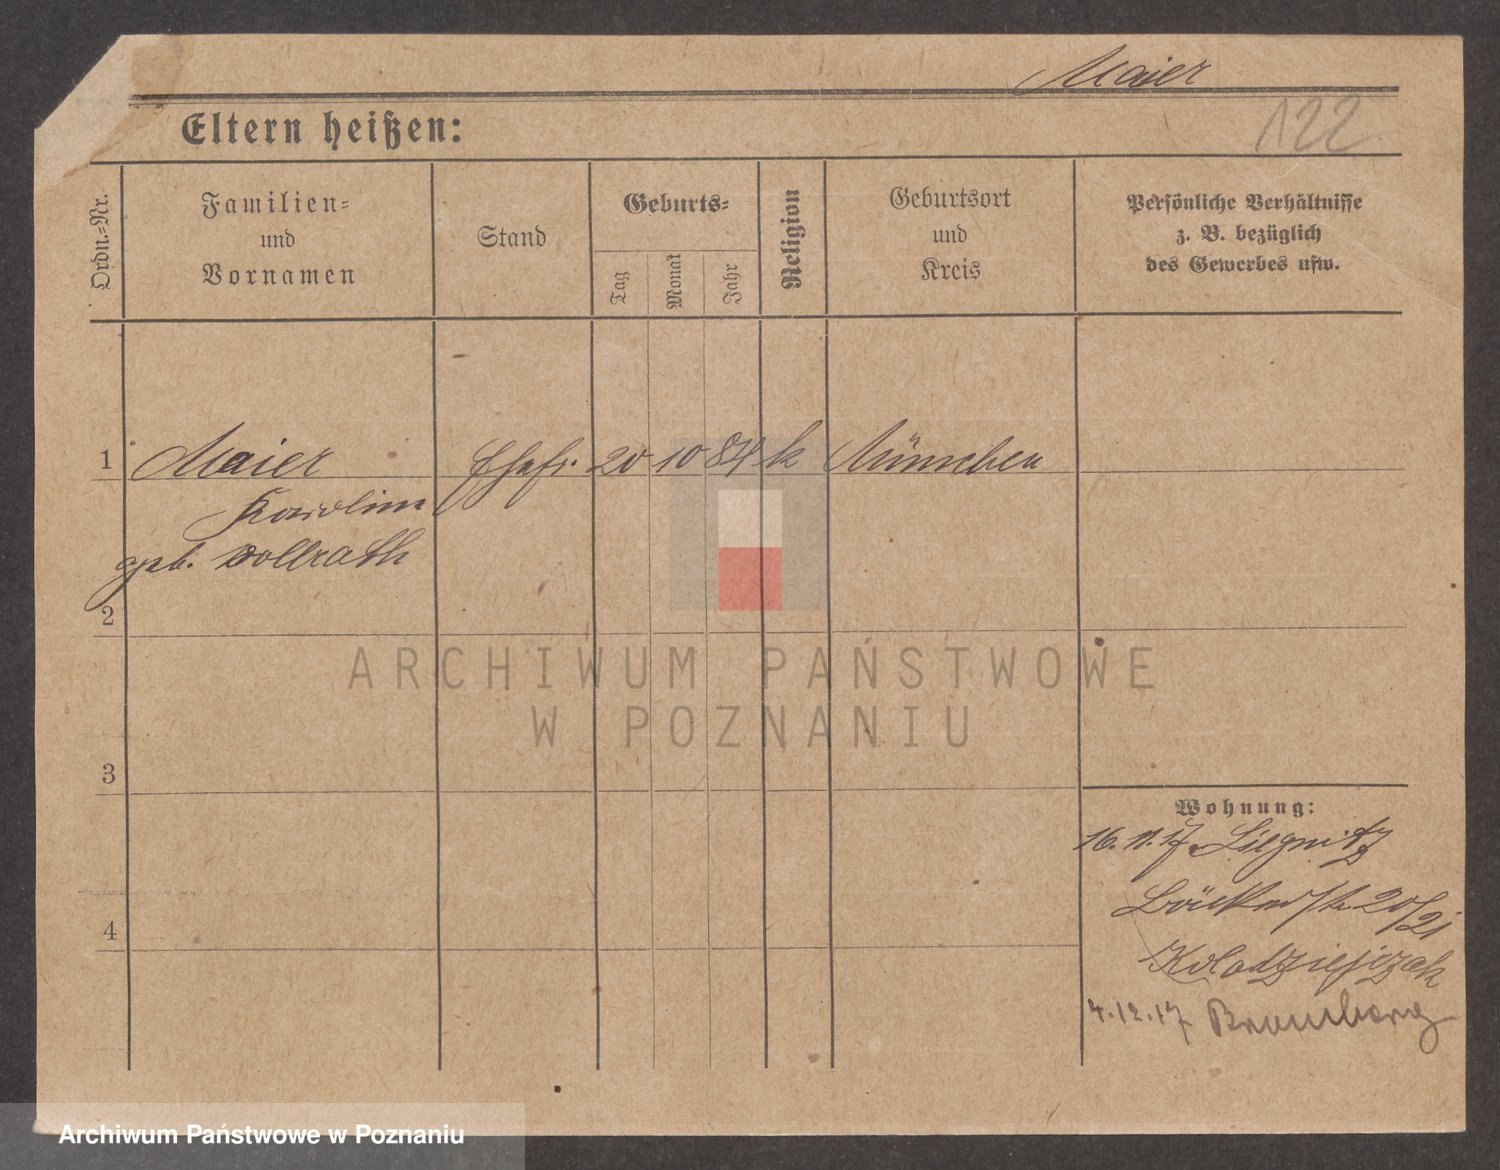 Maier
122
Eltern heißen:
Ordn.=Nr.
Familien=
und
Vornamen
Stand
Geburts=
Tag
Monat
Jahr
Religion
Geburtsort
und
Kreis
Persönliche Verhältnisse
z. B. bezüglich
des Gewerbes usw.
1 Maier Ehefr. 20 10 84 k München
Karoline
geb. Vollrath
2
3
4
Wohnung:
16.11.17 Liegnitz
20/21
Kolodziejczak
4.12.17 Bromberg
ARCHIWUM PAŃSTWOWE
W POZNANIU
Archiwum Państwowe w Poznaniu